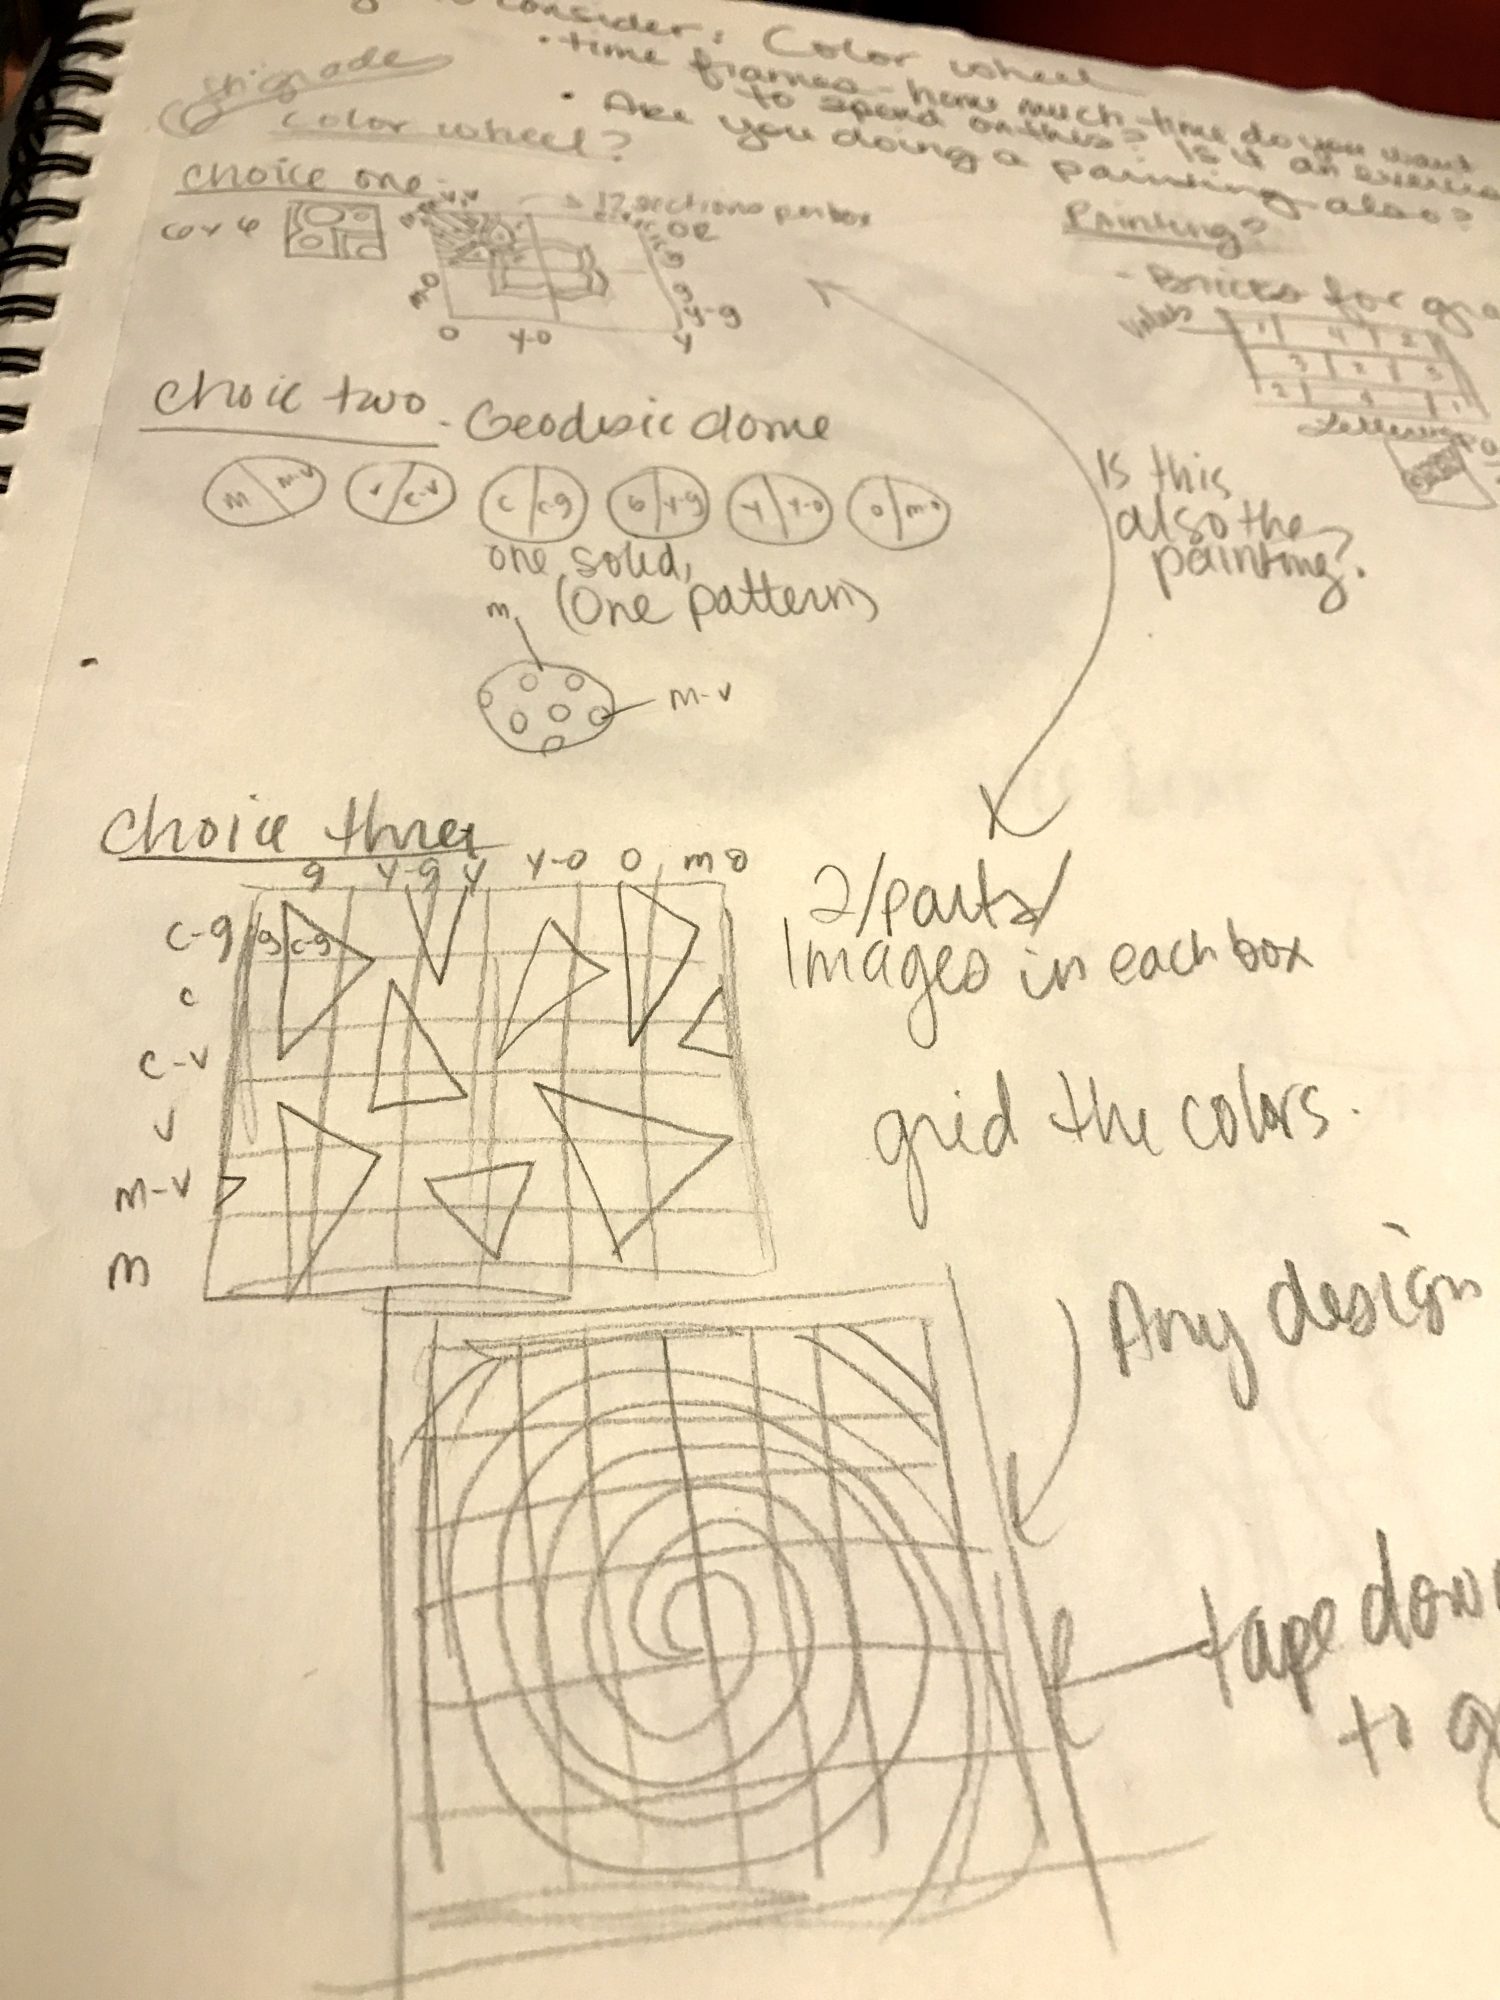 consider: Color wheel
• time frames - how much time do you want
to spend on this? Is it an
• Are you doing a painting also?
5th grade
Color wheel?
Choice one
12 sections per box
OR
m-o
g
y-g
o
y-o
y
Painting?
- Bricks for
1 4 2
3 2 3
2 4 1
Choic two - Geodesic dome
m m-v
v c-v
c c-g
g y-g
y y-o
o m-o
one solid,
(One pattern)
m
m-v
Is this
also the
painting?
Choice three
g y-g y y-o o m o
c-g
g c-g
c
c-v
v
m-v
m
2/parts/
Images in each box
grid the colors.
Any design
tape down
to